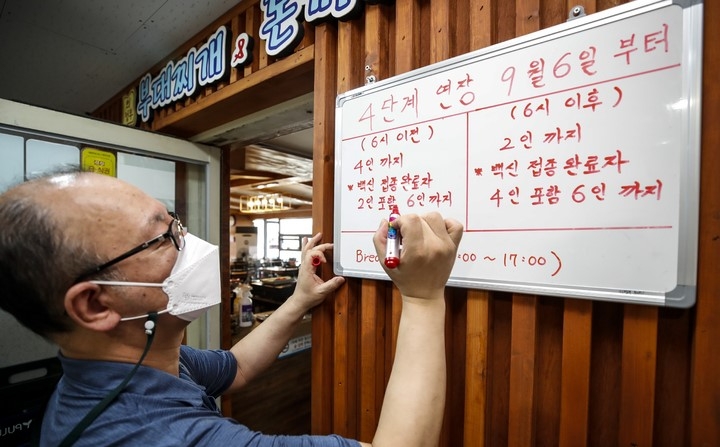 부대찌개
4단계 연장 9월6일 부터
(6시 이전)
4인 까지
※ 백신 접종 완료자
2인 포함 6인 까지
(6시 이후)
2인 까지
※ 백신 접종 완료자
4인 포함 6인 까지
Brea :00 ~ 17:00)